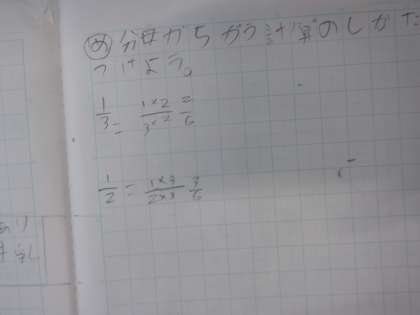 め 分母がちがう計算のしかた
つけよう。
1/3 = 1×2/3×2 2/6
1/2 = 1×3/2×3 3/6